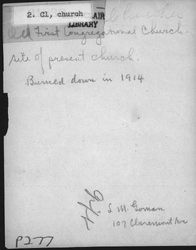 2. Cl, church
LIBRARY
Old First Congregational Church.
site of present church.
Burned down in 1914
L M Goman
107 Claremont Ave
P277